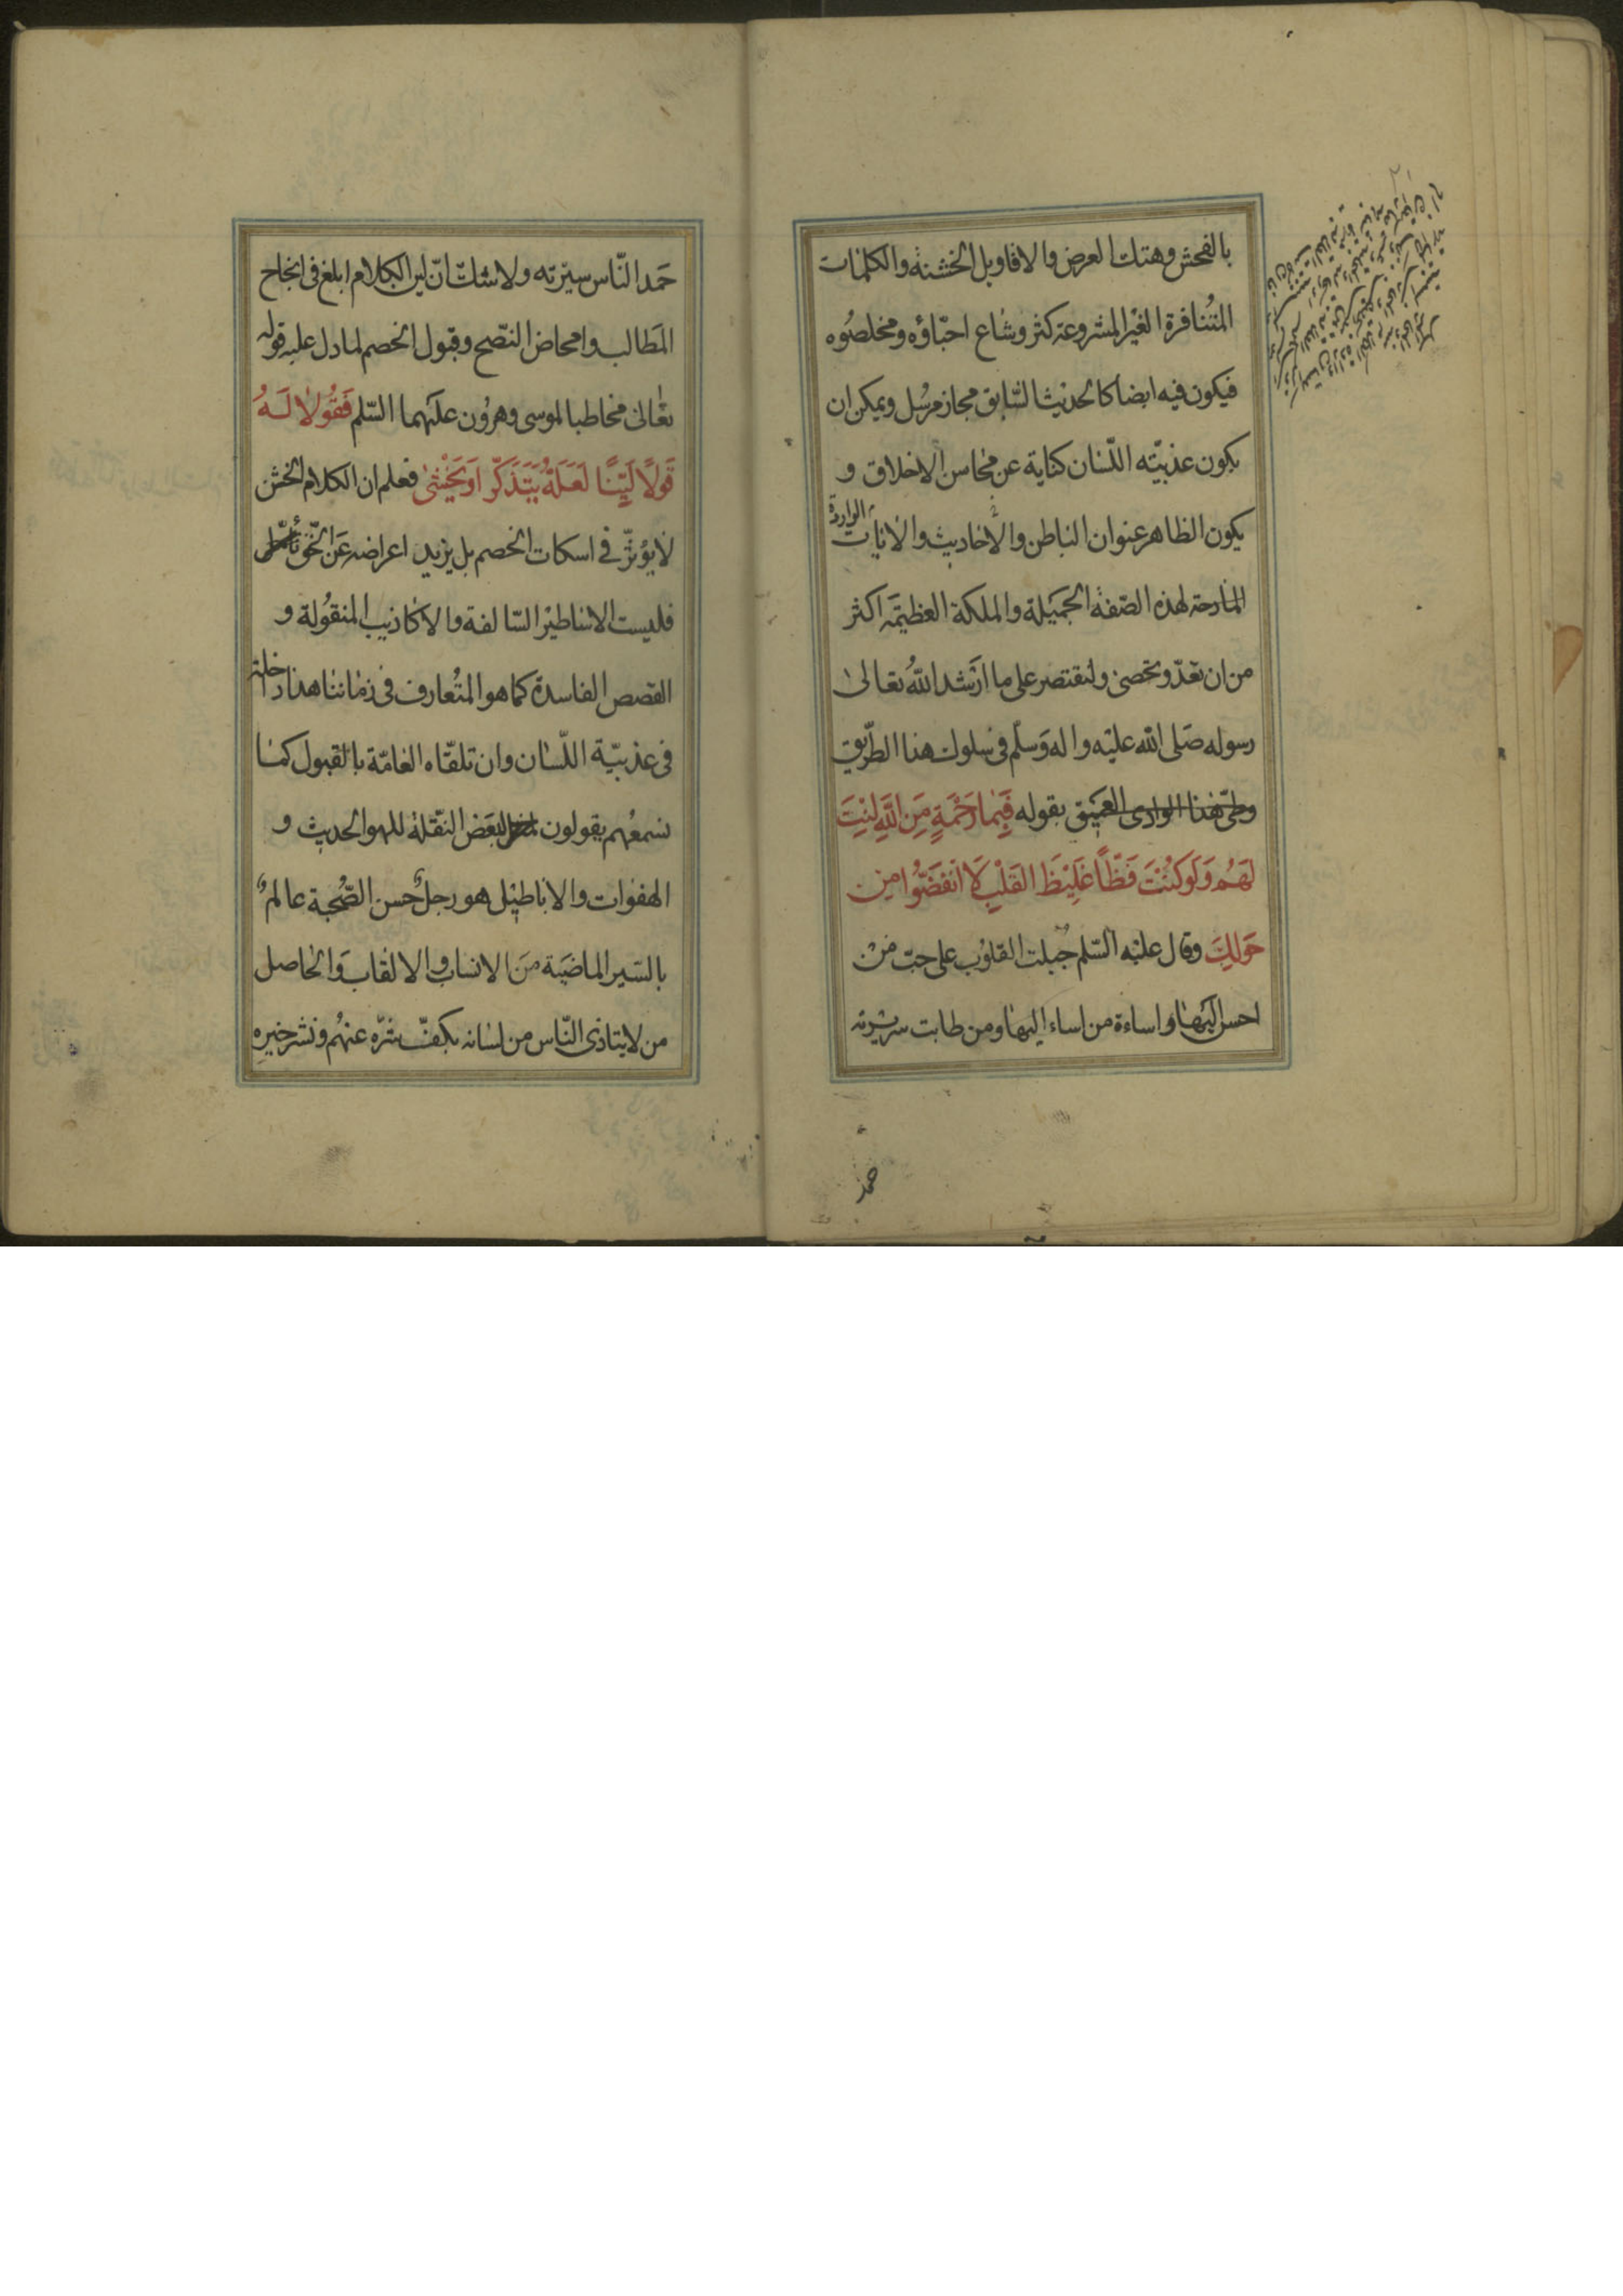 بالفحش وهتك العرض والاقاويل الخشنة والكلمات
المتنافرة الغير المشروعة كثر وشاع احبّاؤه ومخلصوه
فيكون فيه ايضا كالحديث السّابق مجاز مرسل ويمكن ان
يكون عذبيّته اللّسان كناية عن محاسن الاخلاق و
يكون الظاهر عنوان الباطن والأحاديث والايات الواردة
المادحة لهذه الصّفة الجميلة والملكة العظيمة اكثر
من ان تعدّ وتحصى ولنقتصر على ما ارشد الله تعالى
رسوله صلى الله عليه واله وسلّم فى سلوك هذا الطّريق
وطىّ هذا الوادى العميق بقوله فَبِمَا رَحْمَةٍ مِنَ اللّهِ لِنْتَ
لَهُمْ وَلَوْ كُنْتَ فَظّاً غَلِيْظَ القَلْبِ لَا انْفَضُّوا مِن
حَوْلِكَ وقال عليه السّلم جبلت القلوب على حبّ من
احسن اليها واساءة من اساء اليها ومن طابت سريرته
حمد
حَمد النّاس سيرته ولا شك انّ لين الكلام ابلغ فى انجاح
المطالب وامحاض النّصح وقبول الخصم لما دل عليه قوله
تعالى مخاطبا لموسى وهرون عليهما السّلم فَقُولَا لَهُ
قَوْلًا لَيِّنًا لَعَلَّهُ يَتَذَكَّرُ اَوْ يَخْشٰى فعلم ان الكلام الخشن
لا يؤثّر فى اسكات الخصم بل يزيد اعراضه عن الحقّ
فليست الاساطير السّالفة والاكاذيب المنقولة و
القصص الفاسدة كما هو المتعارف فى زماننا هذا داخلة
فى عذبيّة اللّسان وان تلقّاه العامّة بالقبول كما
نسمعهم يقولون لبعض النّقلة للهو الحديث و
الهفوات والاباطيل هو رجلٌ حسن الصّحبة عالمٌ
بالسّير الماضية من الانساب والالقاب والحاصل
من لا يتاذى النّاس من لسانه بكفّ شرّه عنهم ونشر خيره